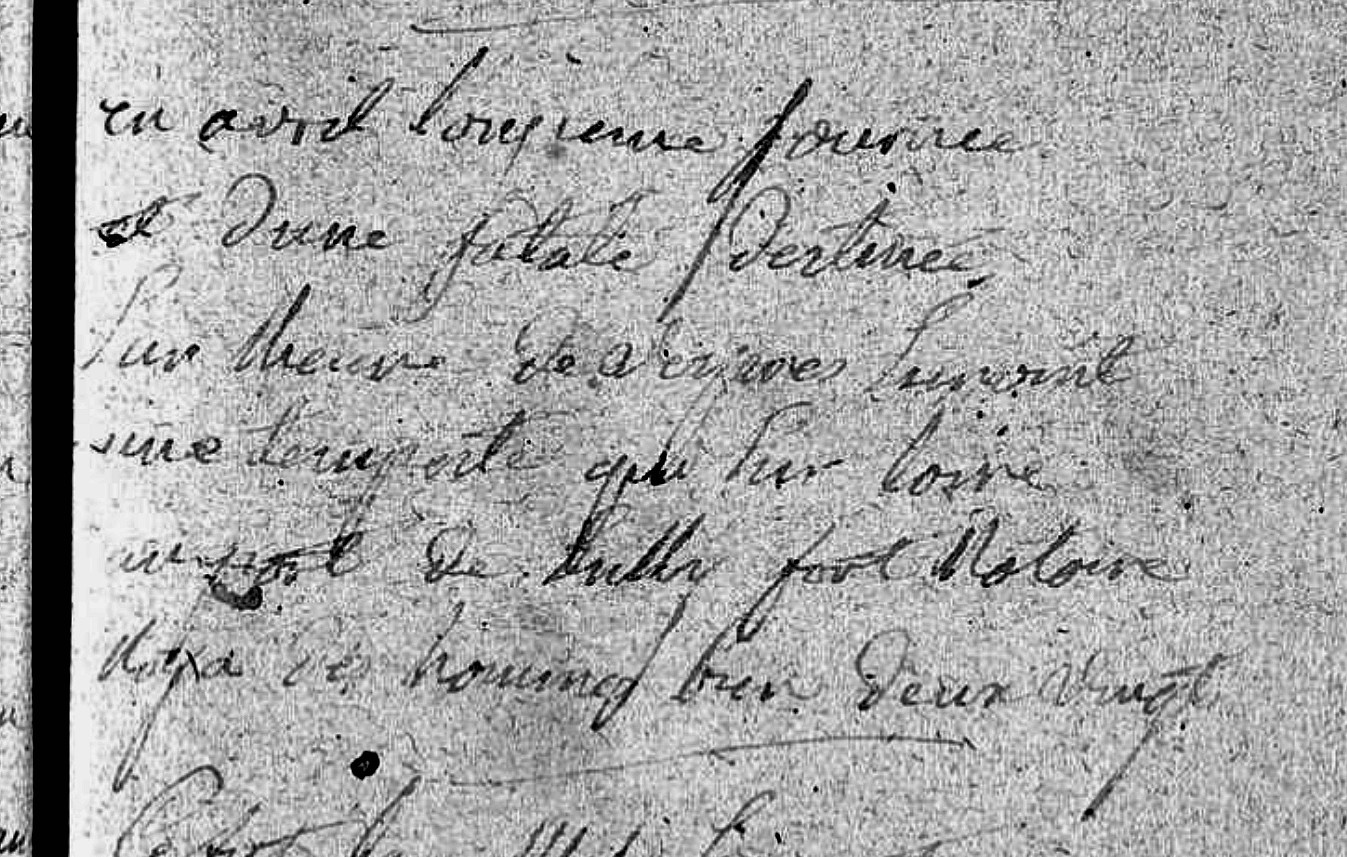 en avril longieme journee
et dune fatale destinee
sur lheure de vepres survint
une tempeste qui sur loire
au port de sully fort Notoire
Noya des hommes bien deux vingt